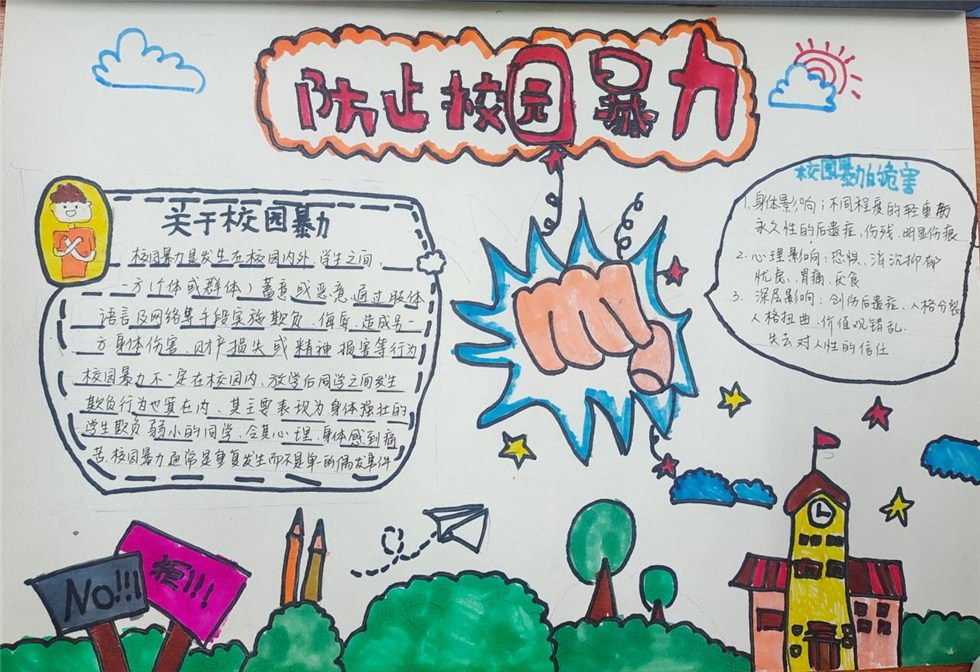 防止校园暴力
关于校园暴力
校园暴力是发生在校园内外、学生之间、
一方(个体或群体)蓄意或恶意通过肢体
语言及网络等手段实施欺负、侮辱、造成另一
方身体伤害、财产损失或精神损害等行为
校园暴力不一定在校园内，放学后同学之间发生
欺负行为也算在内、其主要表现为身体强壮的
学生欺负弱小的同学、令其心理、身体感到痛
苦、校园暴力通常是重复发生而不是单一的偶发事件
校园暴力的危害
1.身体影响；不同程度的轻重伤
永久性的后遗症、伤残、明显伤痕
2.心理影响：恐惧、消沉抑郁
忧虑、胃痛、厌食
3.深层影响：创伤后遗症、人格分裂
人格扭曲、价值观错乱
失去对人性的信任
NO!!!
拒!!!